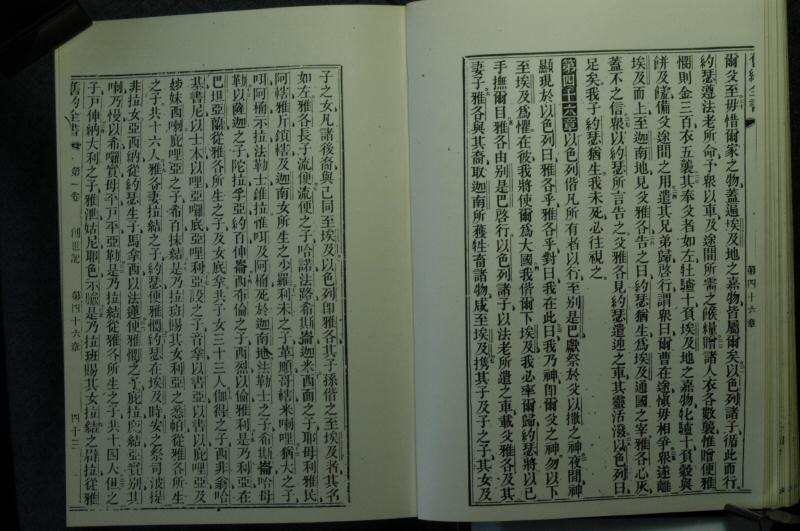 舊約全書
第四十六章
爾父至毋惜爾家之物蓋遍埃及地之嘉物皆屬爾矣以色列諸子循此而行
約瑟遵法老所命予眾以車及途間所需之餱糧贈諸人衣各數襲惟贈便雅
憫則金三百衣五襲其奉父者如左牡驢十負埃及地之嘉物牝驢十負穀與
餅及餱備父途間之用遣其兄弟歸啓行謂眾曰爾曹在途慎毋相爭眾遂離
埃及而上至迦南地見父雅各告之曰約瑟猶生爲埃及通國之宰雅各心灰
蓋不之信眾以約瑟所言告之父雅各見約瑟遣迎之車其靈活潑以色列曰
足矣我子約瑟猶生我未死必往視之
第四十六章以色列偕凡所有者以行至别是巴獻祭於父以撒之神夜間神
顯現於以色列曰雅各乎雅各乎對曰我在此曰我乃神即爾父之神勿以下
至埃及爲懼在彼我將使爾爲大國我偕爾下埃及我必率爾歸約瑟將以己
手撫爾目雅各由别是巴啓行以色列諸子以法老所遣之車載父雅各及其
妻子雅各與其裔取迦南所獲牲畜諸物咸至埃及携其子及子之子其女及
子之女凡諸後裔與己同至埃及以色列即雅各其子孫偕之至埃及者其名
如左雅各長子流便流便之子哈諾法路希斯崙迦米西面之子耶母利雅民
阿轄雅斤鎖轄及迦南女所生之少羅利未之子革順哥轄米喇哩猶大之子
咡阿楠示拉法勒士雜拉惟咡及阿楠死於迦南地法勒士之子希斯崙哈母
勒以薩迦之子陀拉孚亞約百伸崙西布倫之子西烈以倫雅利是乃利亞在
巴坦亞蘭從雅各所生之子及女底拿其子女三十三人伽得之子西非翁哈
基書尼以士本以哩亞囉底亞哩利亞設之子音拿以書亞以書以庇哩亞及
姊妹西喇庇哩亞之子希百抹結是乃拉班賜其女利亞之悉帕從雅各所生
之子共十六人雅各妻拉結之子約瑟便雅憫約瑟在埃及時安之祭司波提
非拉女亞西納從約瑟生子馬拿西以法蓮便雅憫之子
喇乃慢以希囉實母平戶平亞勒是乃拉結從雅各所生之子共十四人但之
子戶伸納大利之子雅泄姑尼耶色示臘是乃拉班賜其女拉結之辟拉從雅
舊約全書 第一卷 創世記 第四十六章 四十三